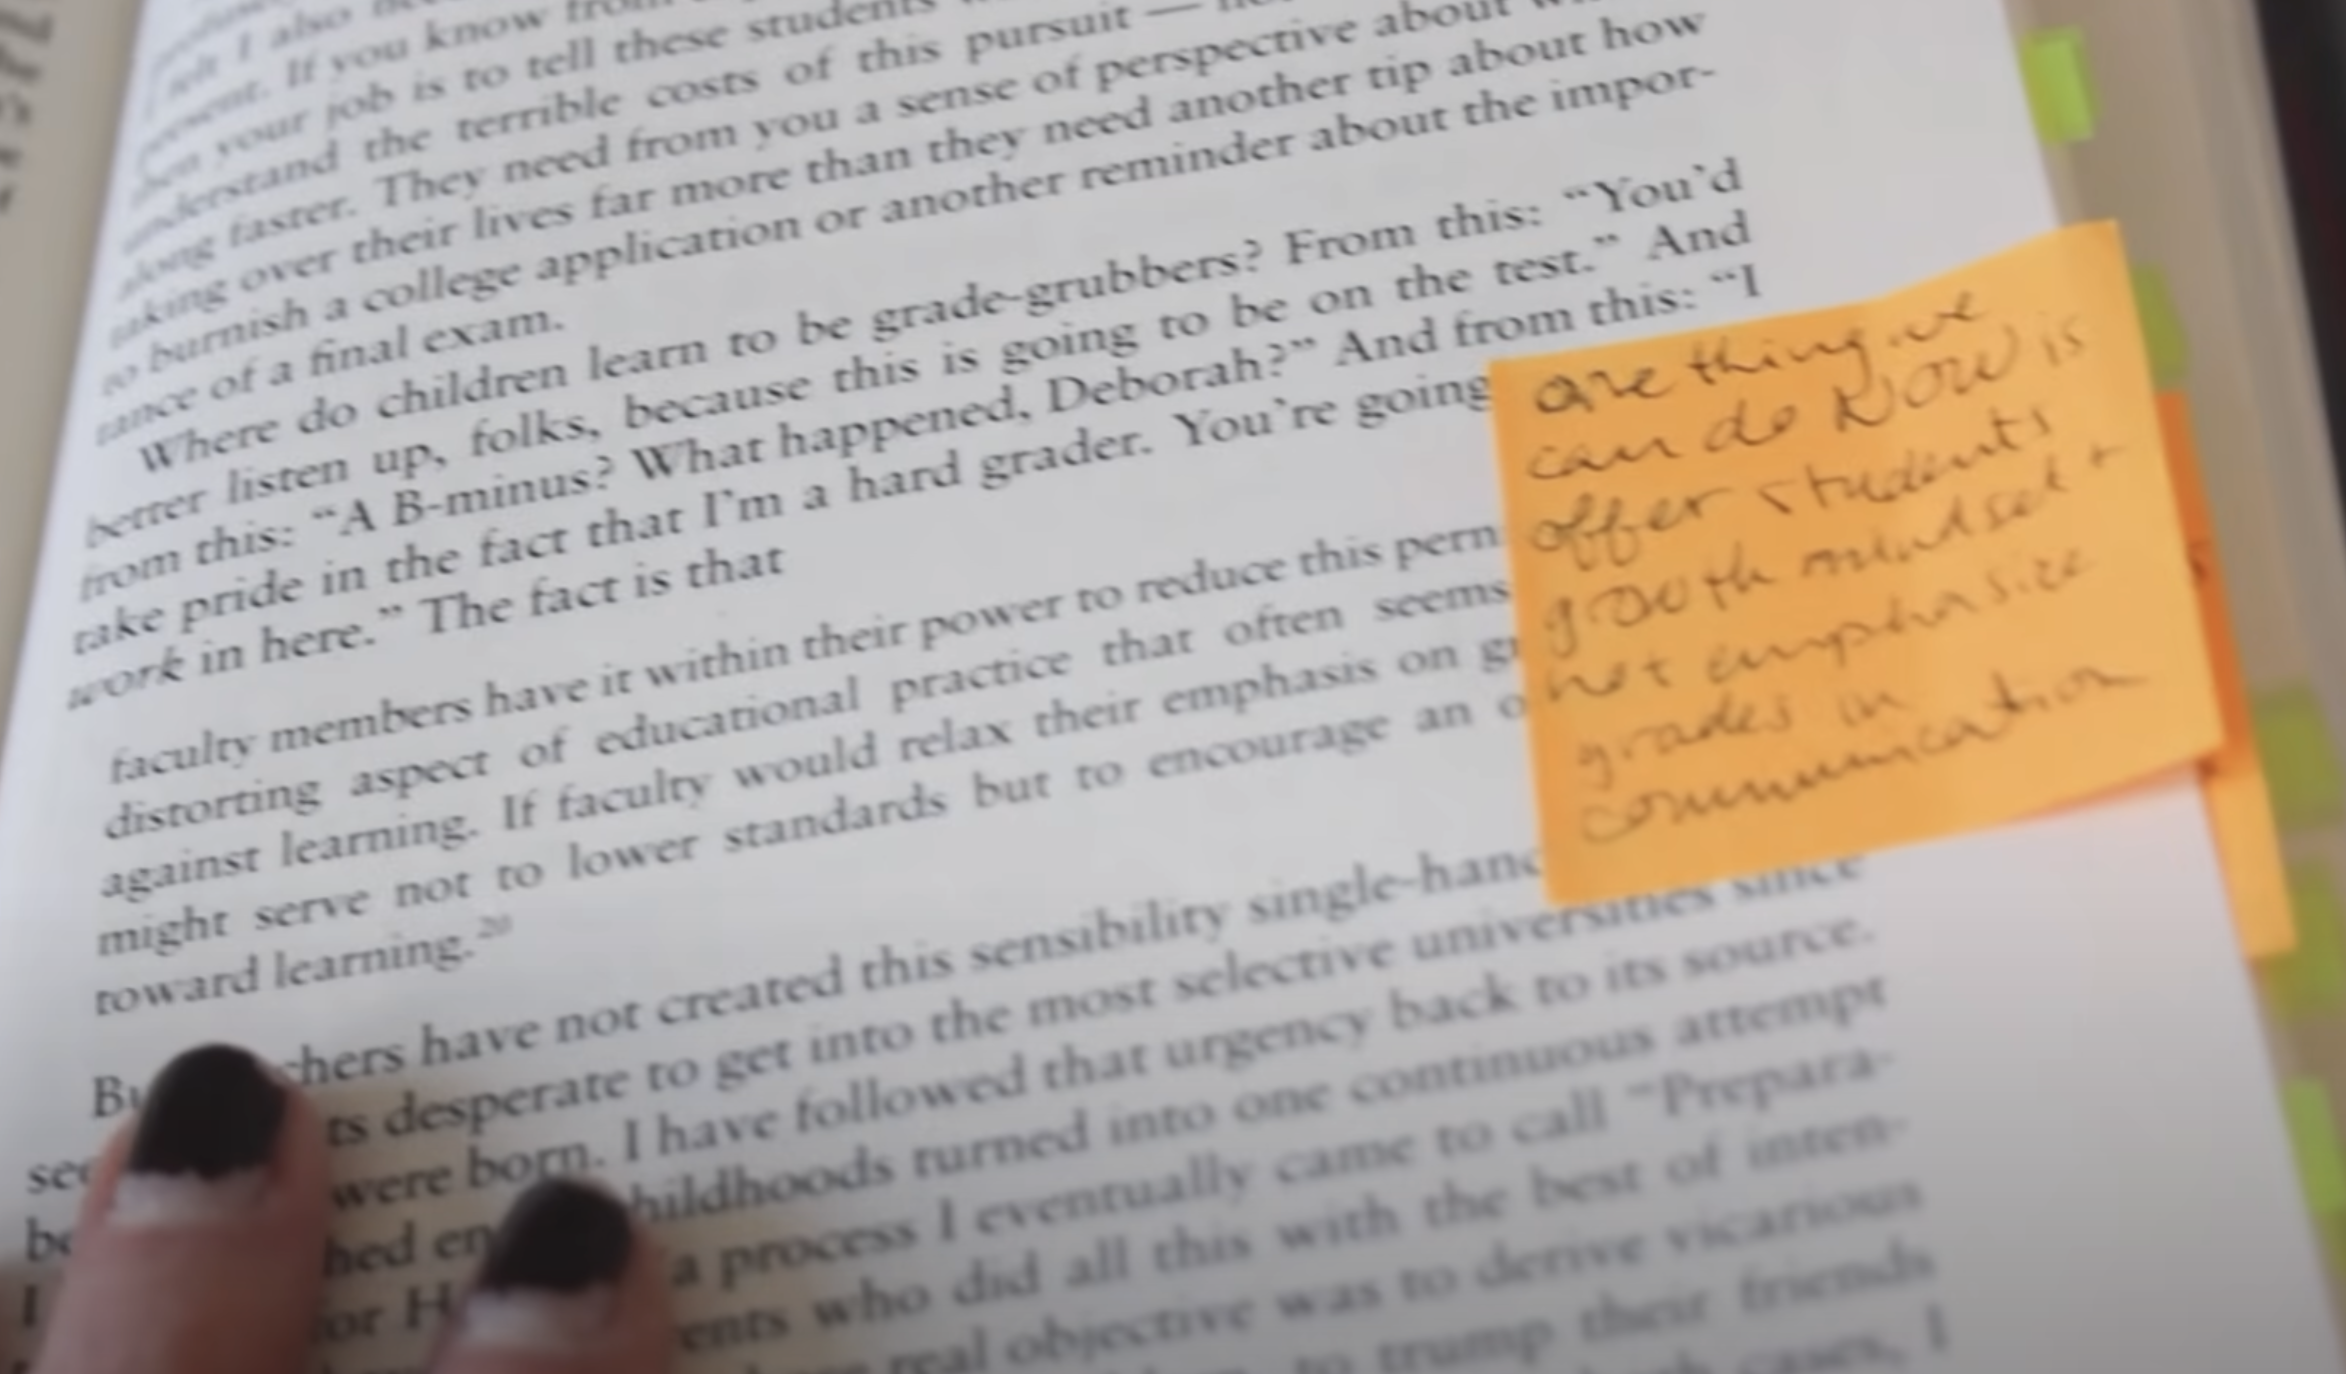 felt I also
present. If you know from
then your job is to tell these students
understand the terrible costs of this pursuit —
along faster. They need from you a sense of perspective about
taking over their lives far more than they need another tip about how
to burnish a college application or another reminder about the impor-
tance of a final exam.
Where do children learn to be grade-grubbers? From this: “You’d
better listen up, folks, because this is going to be on the test.” And
from this: “A B-minus? What happened, Deborah?” And from this: “I
take pride in the fact that I’m a hard grader. You’re going
work in here.” The fact is that
faculty members have it within their power to reduce this pern
distorting aspect of educational practice that often seems
against learning. If faculty would relax their emphasis on gr
might serve not to lower standards but to encourage an o
toward learning.20
Bu chers have not created this sensibility single-hand
see ts desperate to get into the most selective universities since
be were born. I have followed that urgency back to its source.
I hed en hildhoods turned into one continuous attempt
or H a process I eventually came to call “Prepara-
ents who did all this with the best of inten-
real objective was to derive vicarious
to trump their friends
cases, I
one thing we
can do NOW is
offer students
growth mindset +
not emphasize
grades in
communication